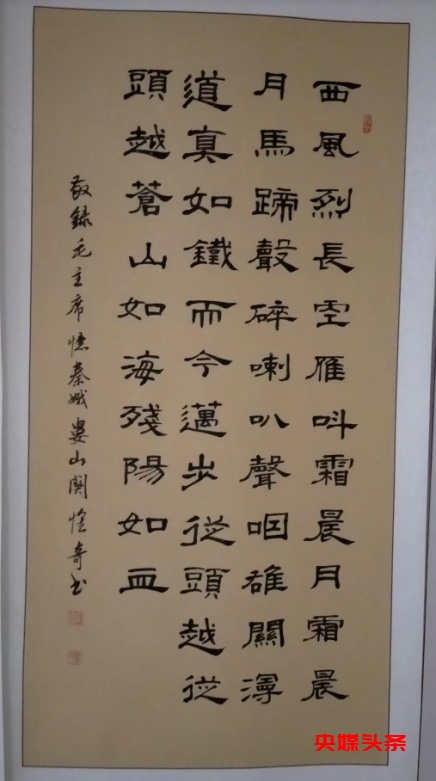 西風烈長空雁叫霜晨月霜晨
月馬蹄聲碎喇叭聲咽雄關漫
道真如鐵而今邁步從頭越從
頭越蒼山如海殘陽如血
敬錄毛主席憶秦娥婁山關奇书
央媒头条